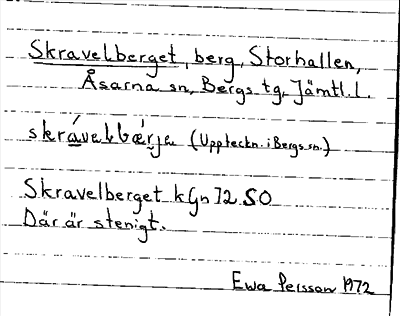 Skravelberget, berg, Storhallen,
Åsarna sn, Bergs tg, Jämtl. l.
skrávelbǽrje (Uppteckn. i Bergs sn.)
Skravelberget k Gn 72 SO
Där är stenigt.
Ewa Persson 1972